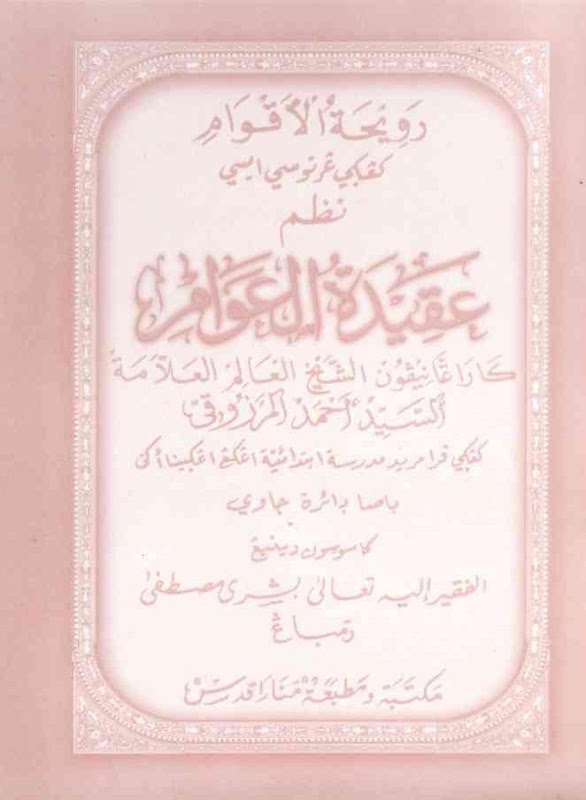 رَوِيْحَةُ الْأَقْوَامِ
كڠݢي غرتوسي ايسي
نظم
عَقِيْدَةُ الْعَوَامِ
كاراڠانيڤون الشَّيْخِ العَالِمِ العَلَّامَةْ
السَّيِّدْ أَحْمَدْ المَرْزُوقِيْ
كڠݢي فرا مريد مدرسة ابتدائية
باصا دائرة جاوي
كاسوسون دينيڠ
الفقير إليه تعالى بشرى مصطفى
رمباڠ
مكتبة ومطبعة منارا قدس